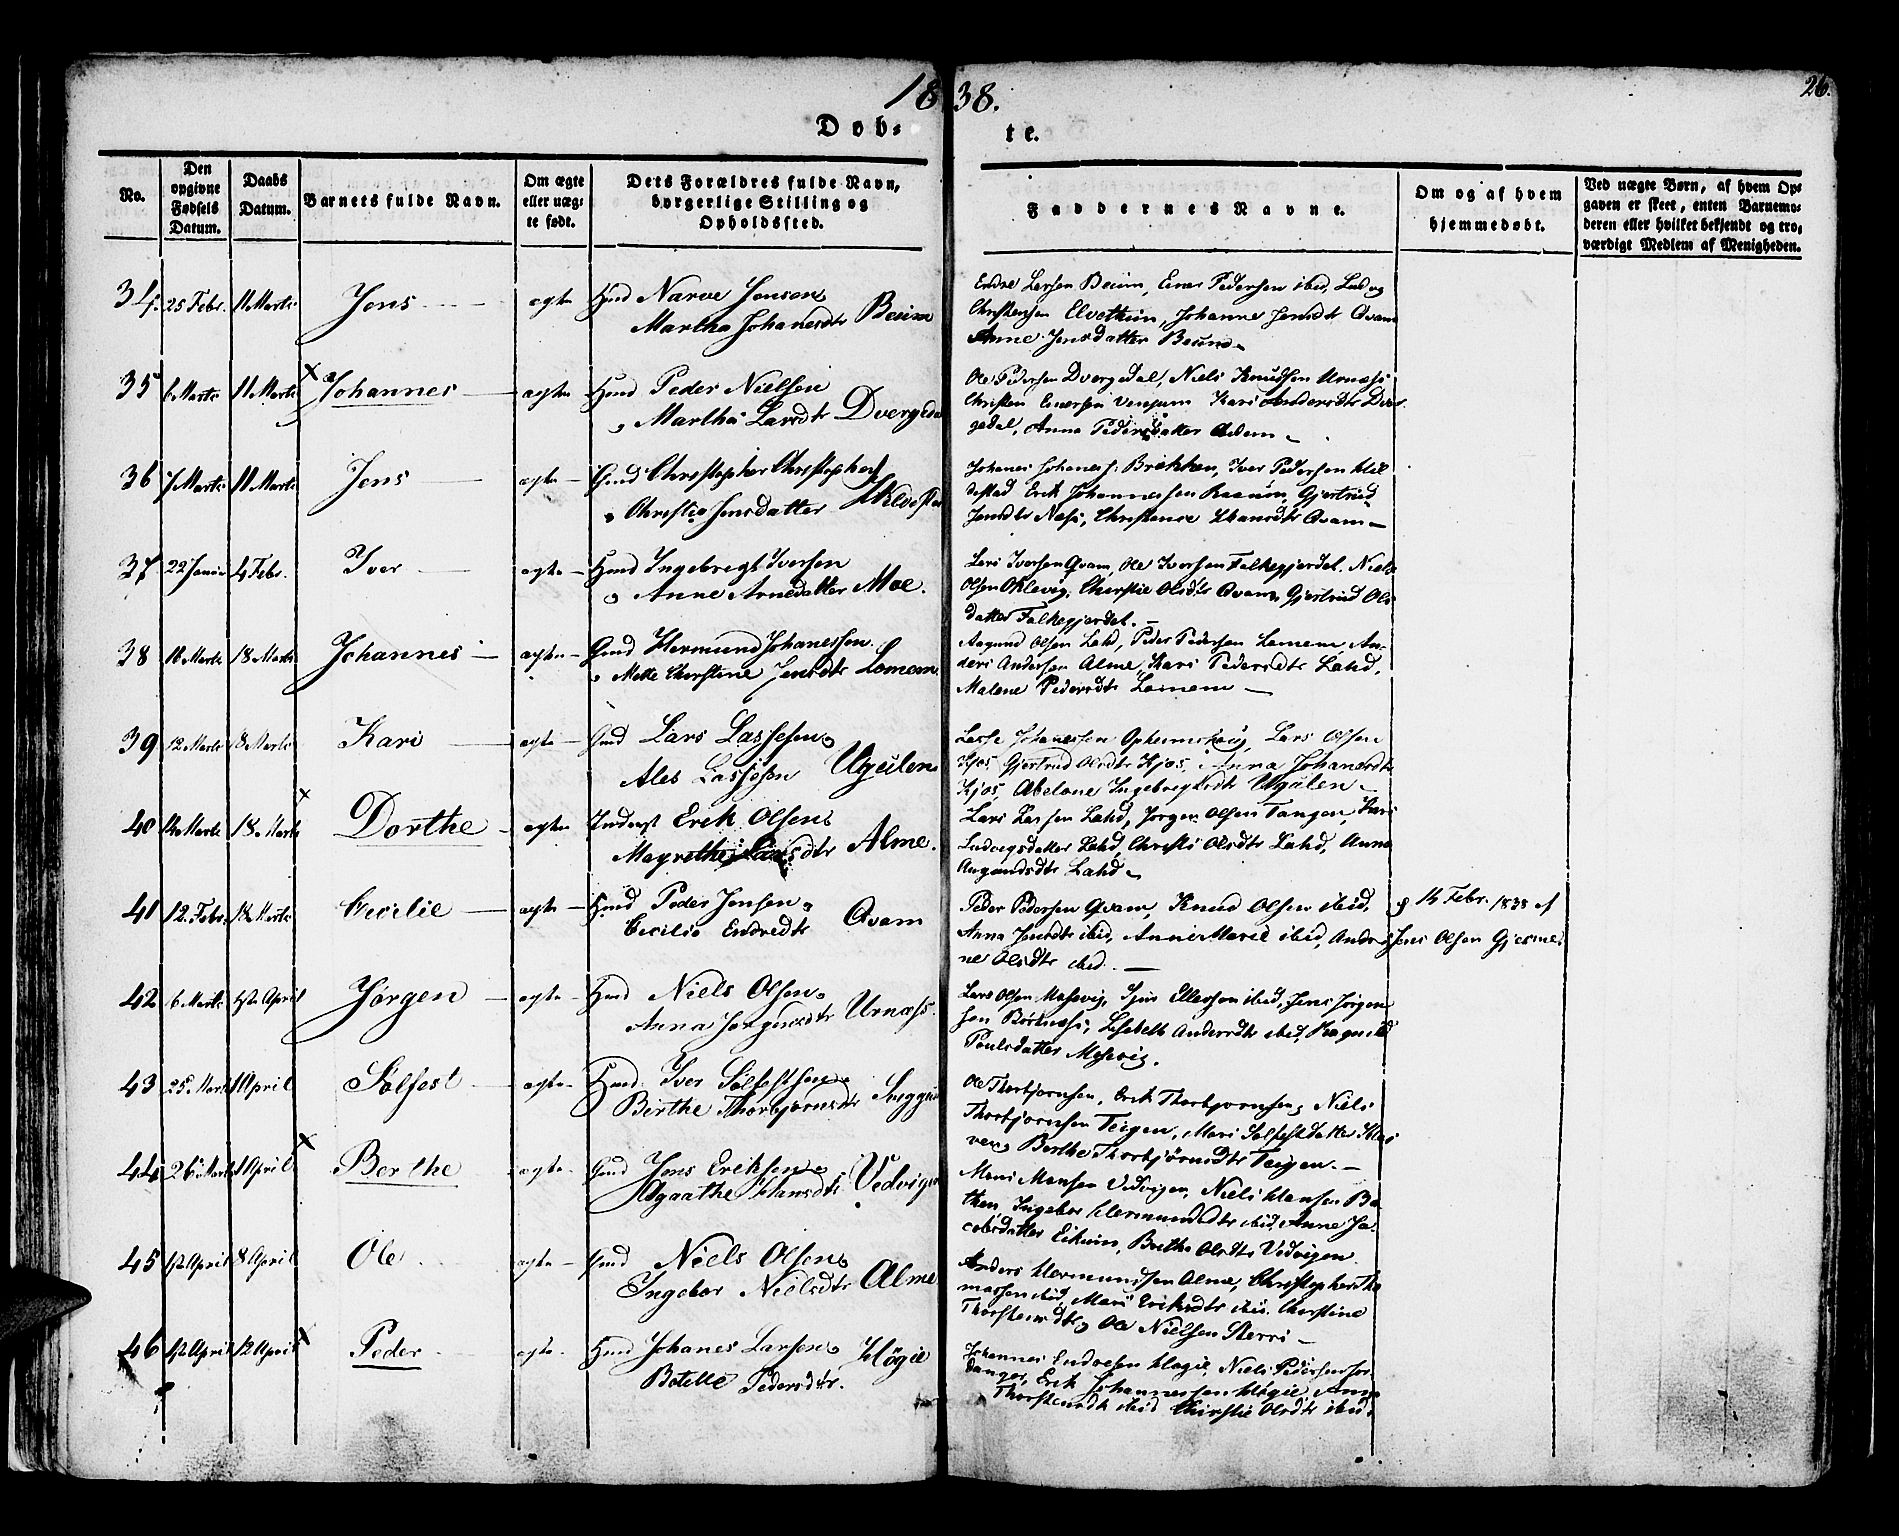 1838.
26.
Døb-
te.
No.
Den
opgivne
Fødsels
Datum.
Daabs
Datum.
Barnets fulde Navn.
Om ægte
eller uæg-
te født.
Dets Forældres fulde Navn,
borgerlige Stilling og
Opholdssted.
Faddernes Navne.
Om og af hvem
hjemmedøbt.
Ved uægte Børn, af hvem Op-
gaven er skeet, enten Barnemo-
deren eller hvilket bekjendt og tro-
værdigt Medlem af Menigheden.
34. 25 Febr. 11 Marts Jens ægte Huusmd Narve Jensen
Martha Johanesdtr Beium
Endre Larsen Beium, Einer Pedersen ibid, Ludvig
Christensen Elvethun, Johanne Jensdtr Qvam
Anne Jensdatter Beium
35 6 Marts 11 Marts Johannes ægte Huusmd Peder Nielsen
Martha Larsdtr Dvergeda
Ole Pedersen Dvergedal, Niels Knudsen Urnæs
Christen Einersen Venjum Kari Andersdtr Dver
gedal, Anna Pedersdatter
36 7 Marts 11 Marts Jens ægte Christopher Christophers
Christie Jensdatter
Johanes Johaness: Brekken, Iver Pedersen Kil
destad Erik Johannessen Gjertrud
Jensdtr Næs, Christence Hansdtr Qvam
37 22 Januar 4 Febr. Iver ægte Ingebregt Iversen
Anne Arnedatter Moe.
Lars Iversen Qvam, Ole Iversen Falkegjerdet. Niels
Olsen Oklevig, Christie Olsdtr Qvam, Gjertrud Ols
datter Falkegjerdet.
38 18 Marts Johannes ægte Hermund Johanessen
Mette Christine Jensdtr Lomem
Aagund Olsen Lahd, Peder Pedersen Lomem, An-
ders Andersen Alme, Kari Pedersdtr Lahd,
Malene Pedersdtr Lomem
39 12 Marts 18 Marts Kari ægte Lars Lassesen
Ales Lassesen Ugulen
Lasse Johanessen Opheimshaug, Lars Olsen
Kjos, Gjertrud Olsdtr Kjos, Anna Johanesdtr
Kjos, Abelone Ingebregtsdtr Ugulen
40 14 Marts 18 Marts Dorthe ægte Inderst Erik Olsen
Magrethe Larsdtr Alme.
Lars Larsen Lahd, Jørgen Olsen Tangen, Kari
Ludvigsdatter Lahd, Christi Olsdtr Lahd, Anna
Augundsdtr Lahd
41 12. Febr. Marts Cecilie ægte Peder Jensen
Cecilie Endredtr Qvam
Peder Pedersen Qvam, Knud Olsen ibid,
Anna Jensdtr ibid, Anne Marie ibid, Andri
ne Olsdtr ibid.
Febr. 1838 af
Jens Olsen Gjesme
42 6 Marts 1ste April Jørgen ægte Niels Olsen
Anna Jørgensdtr Urnæs.
Lars Olsen Mosevig, Sjur Ellersen ibid, Jens Jørgen
sen Børtnæs, Lisabeth Andersdtr ibid, Ragnild
Poulsdatter Mosevig.
43 25 Marts 1 April Sølfest ægte Iver Sølfestsen
Berthe Thorbjørnsdtr
Ole Thorbjørnsen, Erik Thorbjørnsen, Niels
Thorbjørnsen Teigen, Mari Sølfestdatter
ven, Berthe Thorbjørnsdtr Teigen.
44 26 Marts 1 April Berthe ægte Jens Eriksen
Agaathe Hansdtr Vedvigen
Mons Monsen Vedvigen, Niels Hansen Bo
then, Ingebor Hermundsdtr ibid, Anne Ja-
cobsdatter Eikum, Berthe Olsdtr Vedvigen
45 1ste April 8 April Ole ægte Niels Olsen
Ingebor Nielsdtr Alme
Anders Hermundsen Alme, Christopher Tho
massen ibid, Mari Eriksdtr ibid. Christine
Thorstensdtr, Ole Nielsen Skerri
46 April 12 April Peder ægte Johanes Larsen
Botelle Pedersdtr. Høgie
Johannes Endresen Høgie, Niels Pedersen Sør
danger, Erik Johannessen Høgie, Anne
Thorstensdtr ibid Christie Olsdtr ibid